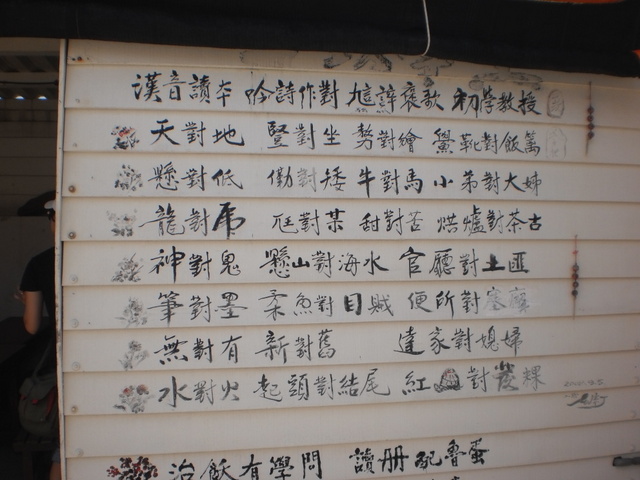 漢音讀本 吟詩作對 尪諄褒歌 初學教授
天對地 豎對坐 勢對繪 對飯篱
懸對低 對矮 牛對馬 小弟對大姊
龍對虎 尫對某 甜對苦 烘爐對茶古
神對鬼 懸山對海水 官廳對土匪
筆對墨 柔魚對目賊 便所對
無對有 新對舊 達家對媳婦
水對火 起頭對結尾 紅龜對發粿
治飫有學問 讀冊配魯蛋